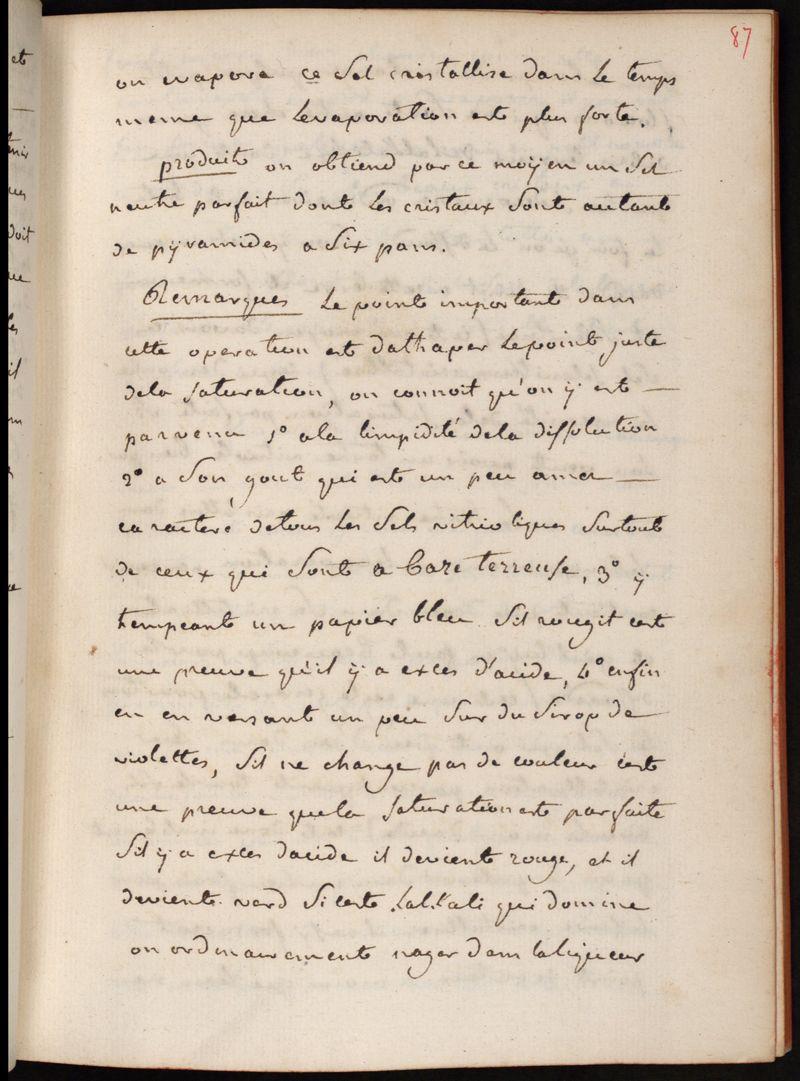 87
on evapore ce Sel cristallise dans Le temps
meme que Levaporation est plus forte.
produit on obtiend par ce moÿen un Sel
neutre parfait dont Les cristaux Sont autant
de pÿramides a Six pans.
Remarques Le point important dans
cette operation est dathaper Lepoint juste
dela Saturation, on connoit qu'on ÿ est —
parvenu 1° ala limpidité dela dissolution
2° a Son gout qui est un peu amer —
caracteré detous Les Sels vitrioliques Surtout
de ceux qui Sont a baze terreuse, 3° ÿ
trempeant un papier bleu Sil rougit cest
une preuve qu'il ÿ a exces d'acide, 4° enfin
en en versant un peu Sur du Sirop de
violettes, Sil ne change pas de couleur cest
une preuve quela Saturation est parfaite
Sil ÿ a exces dacide il devient rouge, et il
devient verd Si cest Lalkali qui domine
on ordinairement nager dans laliqueur
et
tenir
ues
doit
ue
Les
il